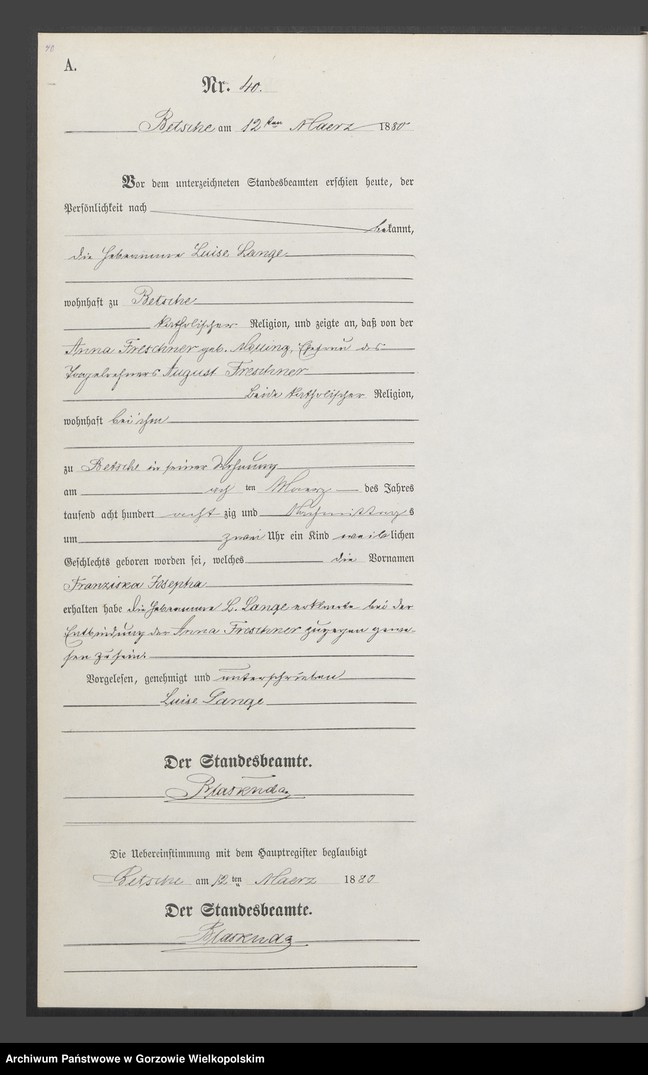 40
A.
Nr. 40.
Betsche am 12ten Maerz 1880
Vor dem unterzeichneten Standesbeamten erschien heute, der
Persönlichkeit nach
bekannt,
die Hebeamme Luise Lange
wohnhaft zu Betsche
katholischer Religion, und zeigte an, daß von der
Anna Freschner geb. Ehefrau des
Tagelöhners August Freschner
beide katholischer Religion,
wohnhaft bei ihm
zu Betsche in seiner Wohnung
am ten Maerz des Jahres
tausend acht hundert acht zig und Nachmittags
um zwei Uhr ein Kind weiblichen
Geschlechts geboren worden sei, welches die Vornamen
Franziska Josepha
erhalten habe die Hebeamme L. Lange erklaerte bei der
Entbindung der Anna Freschner zugegen gewe-
sen zu sein.
Vorgelesen, genehmigt und unterschrieben
Luise Lange
Der Standesbeamte.
Die Uebereinstimmung mit dem Hauptregister beglaubigt
Betsche am 12ten Maerz 1880
Der Standesbeamte.
Archiwum Państwowe w Gorzowie Wielkopolskim